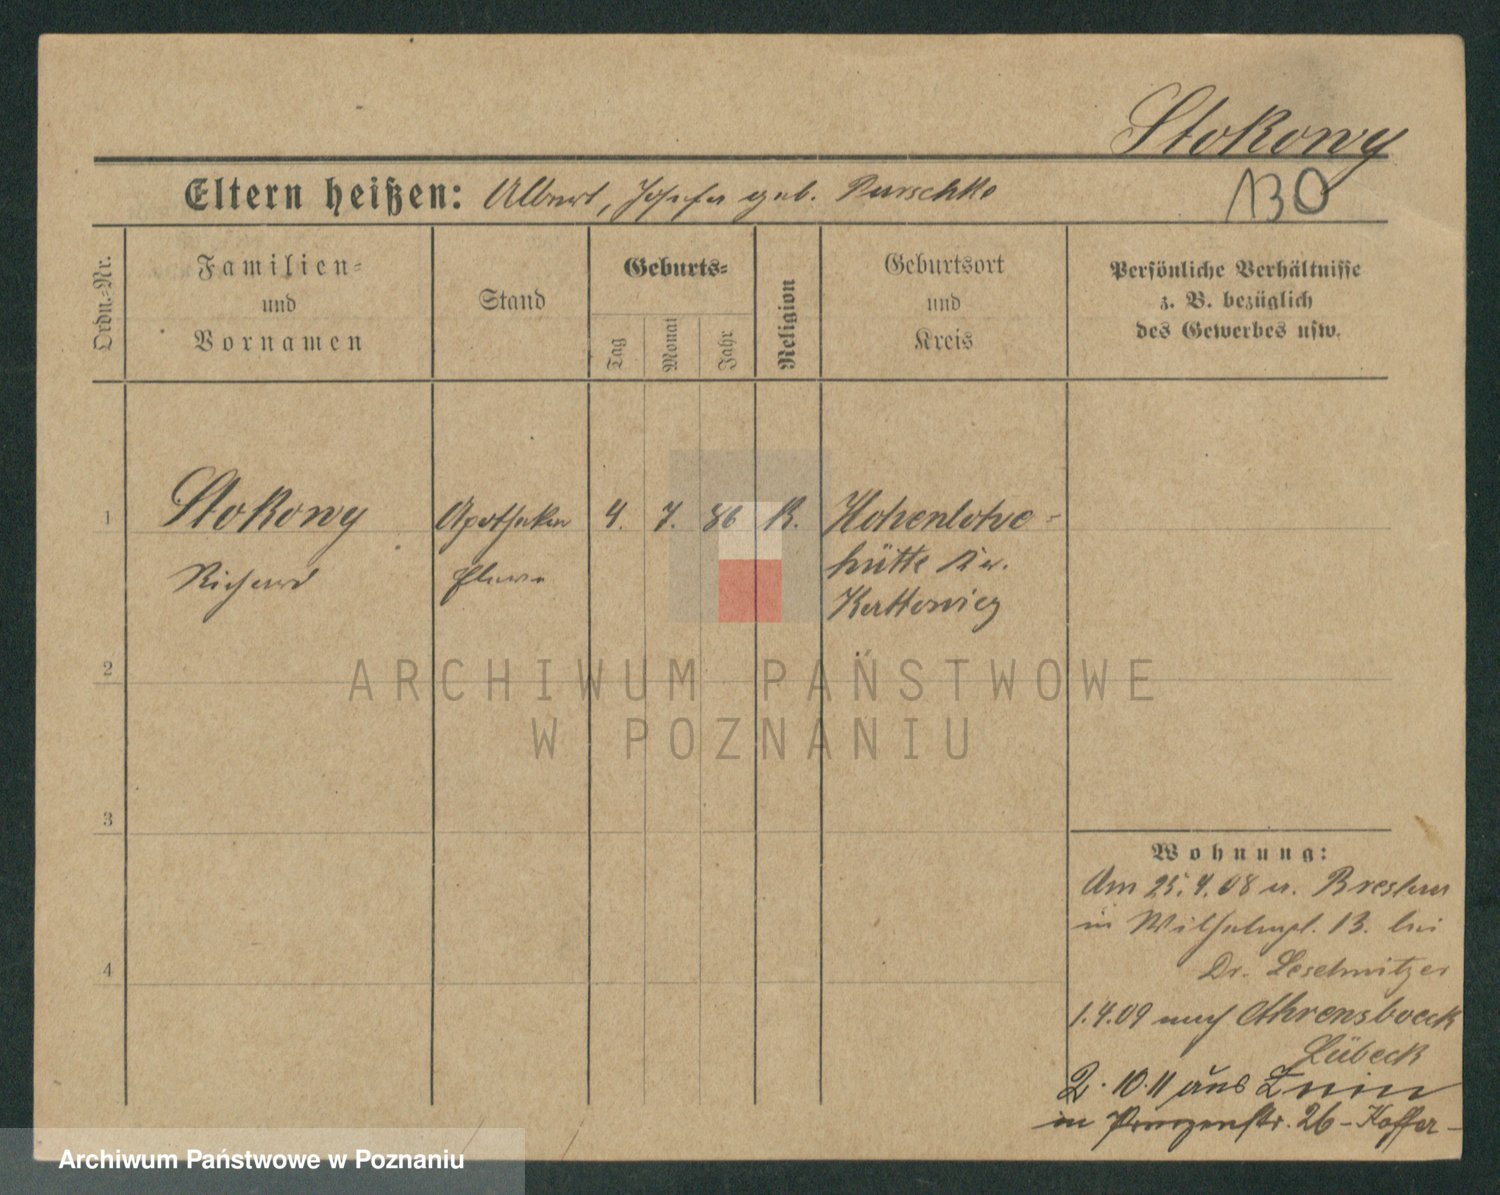 Stokowy
130
Eltern heißen: Albert, Josefa geb. Purschke
Ordn.-Nr.
Familien-
und
Vornamen
Stand
Geburts-
Tag
Monat
Jahr
Religion
Geburtsort
und
Kreis
Persönliche Verhältnisse
z. B. bezüglich
des Gewerbes usw.
1
Stokowy
Richard
Apotheker
Eleve
4. 7. 86 K.
Hohenlohe-
hütte Kr.
Kattowicz
2
3
4
Wohnung:
Am 25.4.08 v. Breslau
in Wilhelmpl. 13. bei
Dr. Leschnitzer
1.4.09 nach Ahrensboeck
Lübeck
2. 10. 11 aus Znin
in Prinzenstr. 26 -
ARCHIWUM PAŃSTWOWE
W POZNANIU
Archiwum Państwowe w Poznaniu